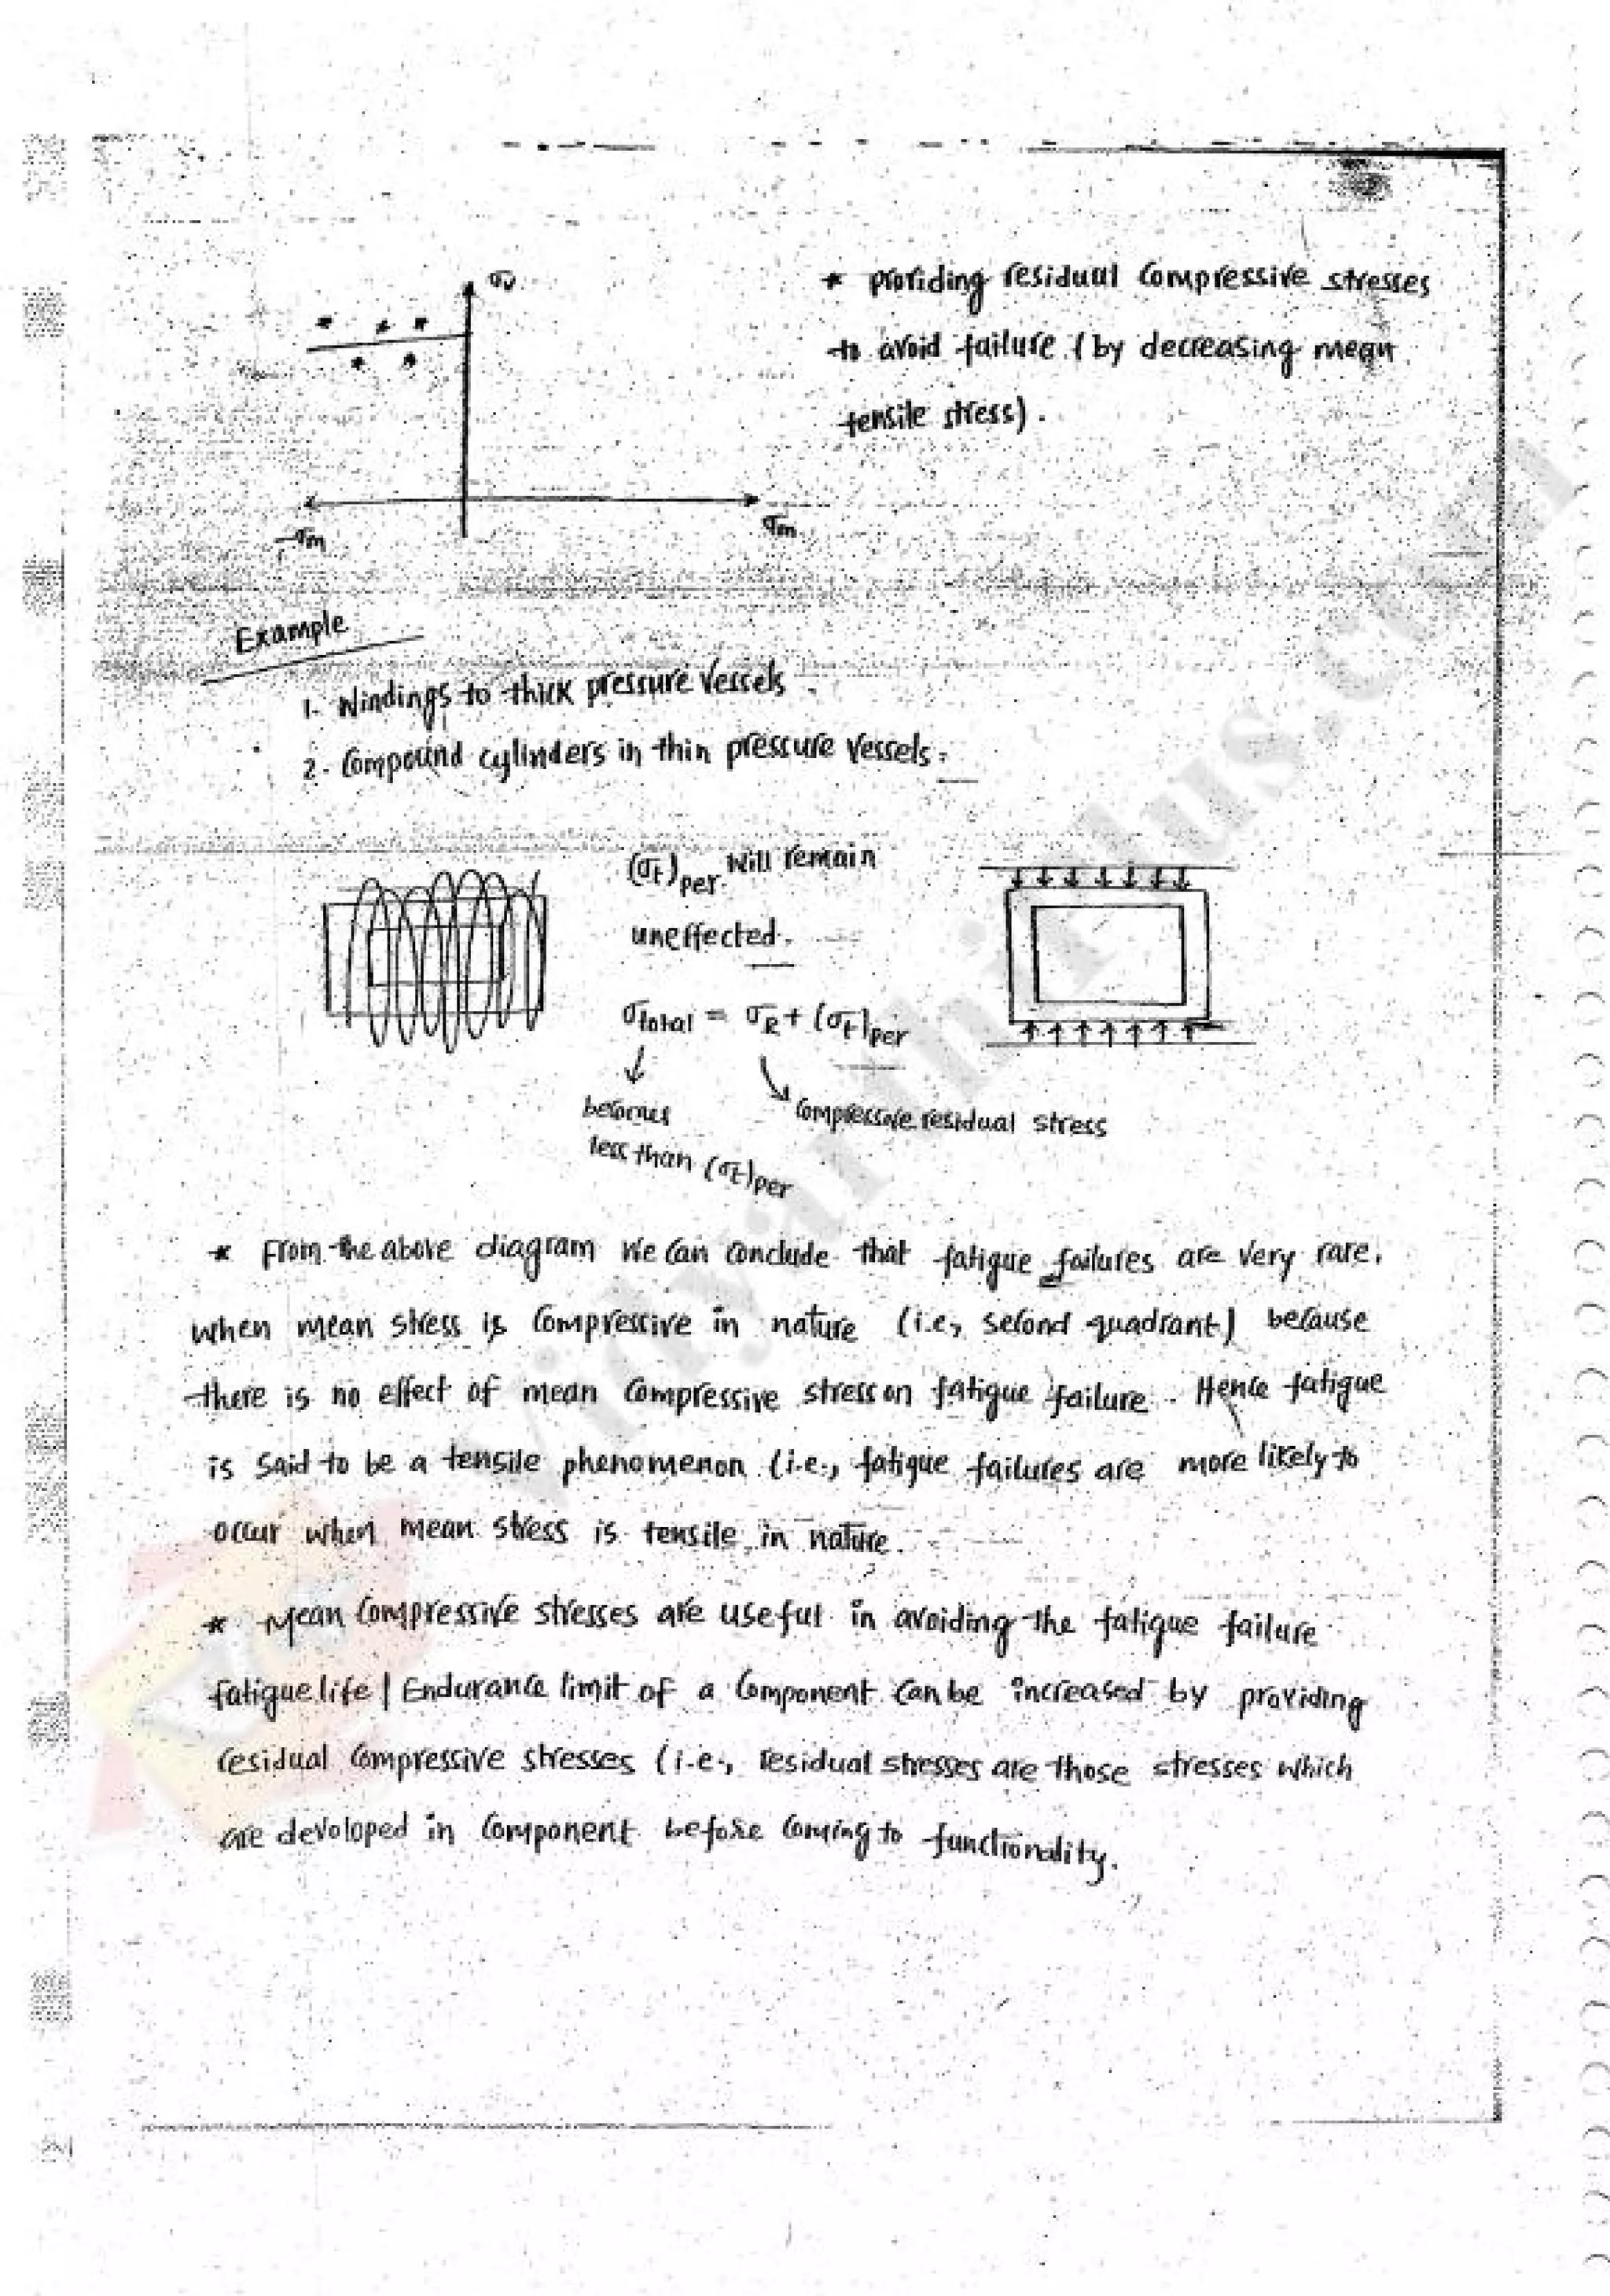 σv
* providing residual compressive stresses
to avoid failure (by decreasing mean
tensile stress).
-σm
σm
Example
1. Windings to thick pressure vessels
2. Compound cylinders in thin pressure vessels.
(σt)per. will remain
uneffected.
σtotal = σR + (σt)per
↓
becomes
less than (σt)per
compressive residual stress
* From the above diagram we can conclude that fatigue failures are very rare.
when mean stress is compressive in nature (i.e, second quadrant) because
there is no effect of mean compressive stress on fatigue failure. Hence fatigue
is said to be a tensile phenomenon (i.e., fatigue failures are more likely to
occur when mean stress is tensile in nature.
* Mean compressive stresses are useful in avoiding the fatigue failure
fatigue life | Endurance limit of a component can be increased by providing
residual compressive stresses (i.e., residual stresses are those stresses which
are devoloped in component before coming to functionality.